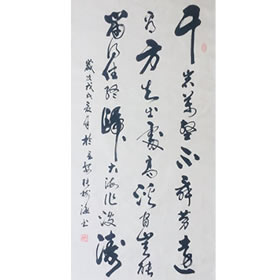 千岩萬壑不辞劳遠
看方知出處高溪澗豈能
留得住終歸大海作波濤
歲次戊戌夏月於書